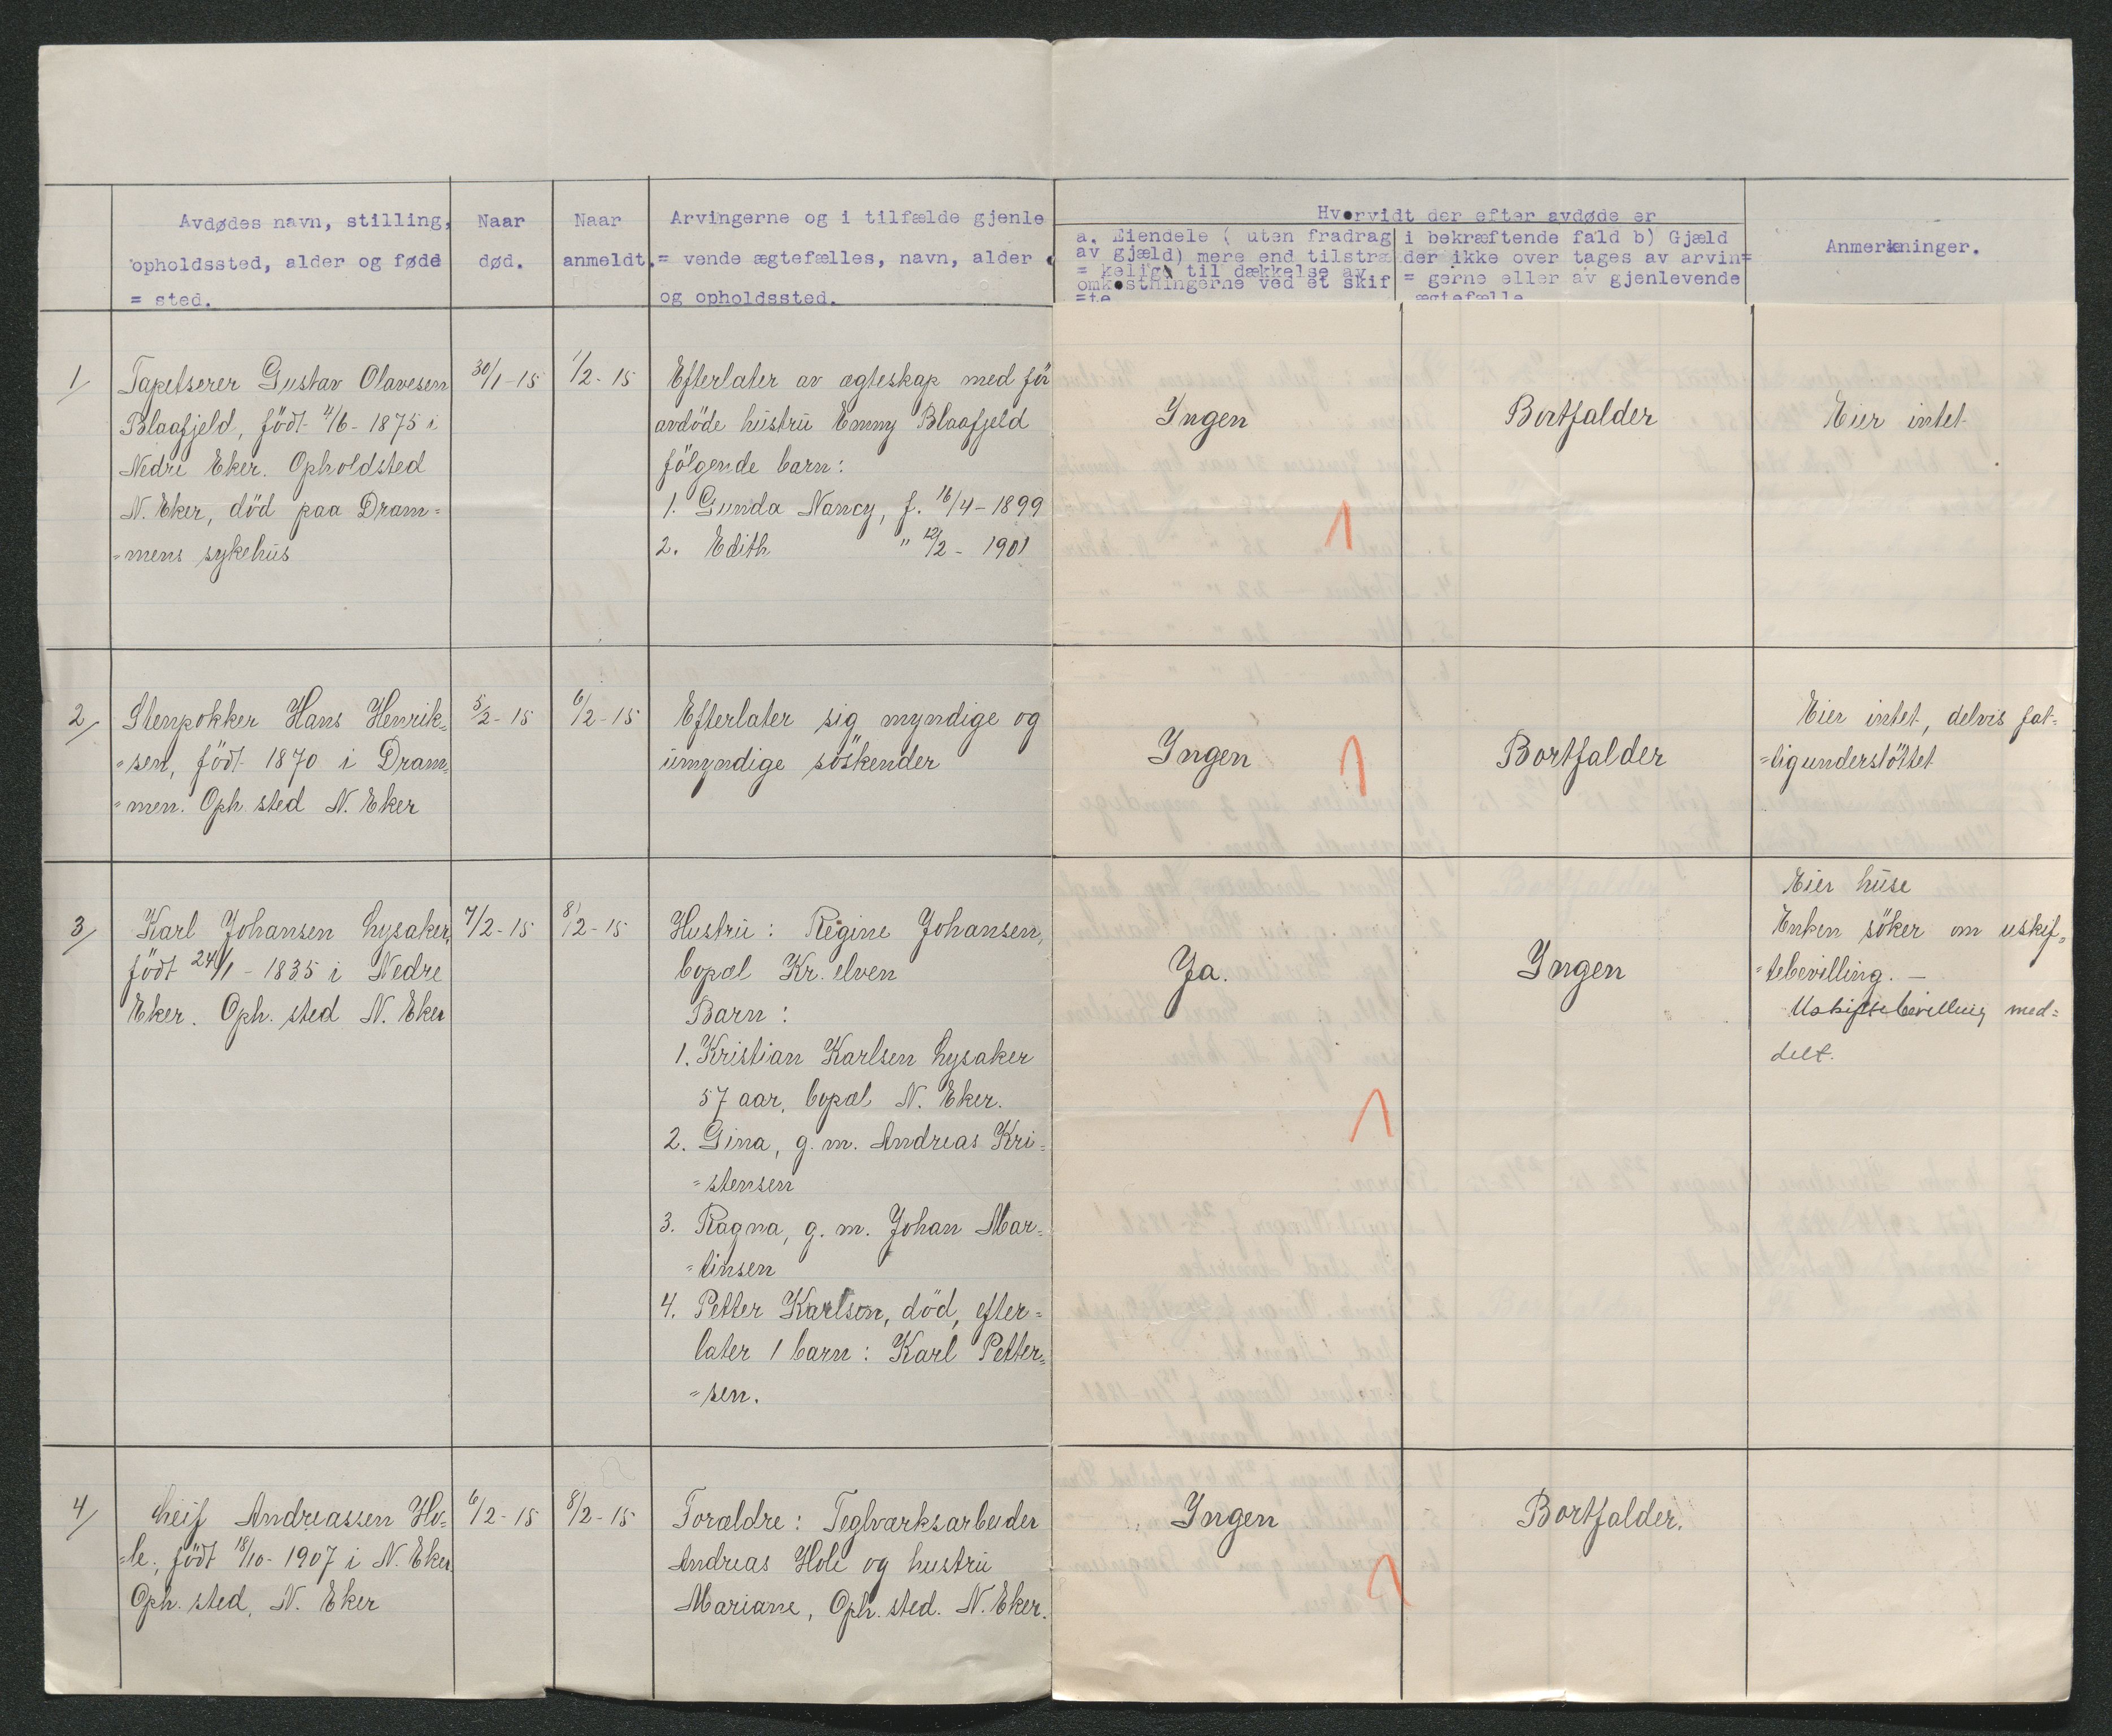 Avdødes navn, stilling,
opholdssted, alder og føde
= sted.
Naar
død.
Naar
anmeldt.
Arvingerne og i tilfælde gjenle
= vende ægtefælles, navn, alder
og opholdssted.
Hvorvidt der efter avdøde er
a. Eiendele ( uten fradrag
av gjæld) mere end tilstræ
= kelige til dækkelse av
omkostningerne ved et skif
=te
i bekræftende fald b) Gjæld
der ikke over tages av arvin=
= gerne eller av gjenlevende
ægtefælle
Anmerkninger.
1/
Tapetserer Gustav Olavesen
Blaafjeld, født 4/6 - 1875 i
Nedre Eker. Opholdsted
N. Eker, död paa Dram=
=mens sykehus
30/1-15
1/2-15
Efterlater av ægteskap med för
avdöde hustru Emmy Blaafjeld
fölgende barn:
1. Gunda Nancy, f. 16/4-1899
2. Edith " 12/2 - 1901
Ingen
Bortfalder
Eier intet
2/
Stenpokker Hans Henrik=
=sen, födt 1870 i Dram=
=men. Oph. sted N. Eker
5/2-15
6/2-15
Efterlater sig myndige og
umyndige söskender
Ingen
Bortfalder
Eier intet, delvis fat=
=tigunderstöttet
3/
Karl Johansen Lysaker,
födt 24/1 - 1835 i Nedre
Eker. Oph. sted N. Eker
7/2-15
8/2-15
Hustru: Regine Johansen,
bopæl Kr. elven
Barn:
1. Kristian Karlsen Lysaker
57 aar, bopæl N. Eker.
2. Gina, g. m. Andreas Kri=
=stensen
3. Ragna, g. m. Johan Mar=
=tinsen
4. Petter Karlson, död, efter=
later 1 barn: Karl Petter=
=sen.
Ja.
Ingen
Eier huse
Enken söker om uskif=
=tebevilling. —
Uskiftebevilling med=
delt.
4/
Leif Andreassen Ho=
=le, födt 18/10-1907 i N. Eker.
Oph. sted, N. Eker
6/2-15
8/2-15
Forældre: Teglværksarbeider
Andreas Hole og hustru
Mariane, Oph. sted. N. Eker.
Ingen
Bortfalder.